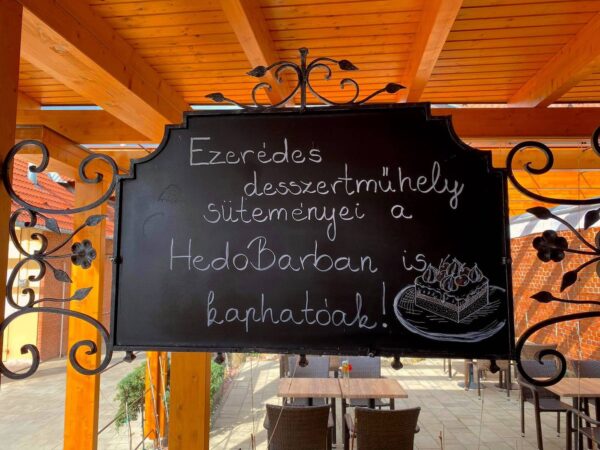 Ezerédes
desszertműhely
süteményei a
HedoBarban is
kaphatóak!